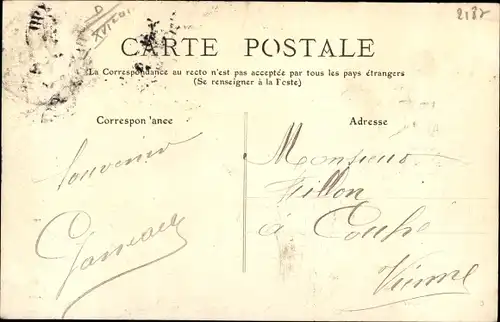 2187
CARTE POSTALE
La Correspondance au recto n'est pas acceptée par tous les pays étrangers
(Se renseigner à la Poste)
Correspon 'ance
Adresse
Souvenir
Monsieur
Fillon
à Couhé
Vienne